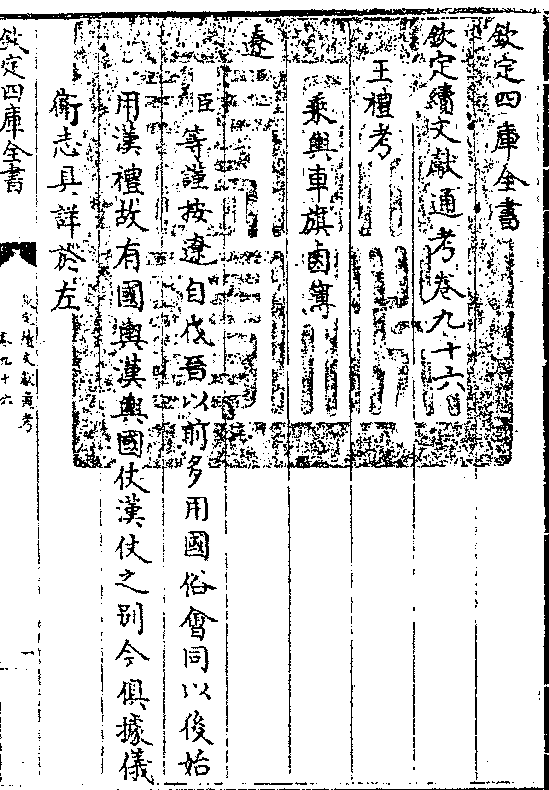 欽定四庫全書
欽定續文獻通考卷九十六
王禮考
乘輿車旗鹵簿
遼
臣等謹按遼自伐晉以前多用國俗會同以後始
用漢禮故有國輿漢輿國仗漢仗之別今俱據儀
衛志具詳於左
欽定四庫全書
欽定續文獻通考
卷九十六
一